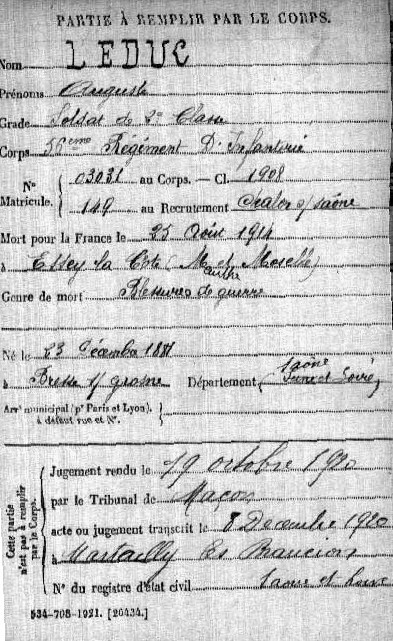 PARTIE À REMPLIR PAR LE CORPS.
Nom LEDUC
Prénoms Auguste
Grade Soldat de 2e Classe
Corps 56eme Régiment D'Infanterie
No Matricule. 03031 au Corps. — Cl. 1908
149 au Recrutement Chalon s/ saône
Mort pour la France le 25 Août 1914
à Essey la Cote (M aurthe et Moselle)
Genre de mort Blessures de guerre
Né le 23 Décembre
à Bresse s/ grosne Département saône et Loire
Arrt municipal (pr Paris et Lyon),
à défaut rue et No.
Cette partie n'est pas à remplir par le Corps.
Jugement rendu le 19 octobre 1920
par le Tribunal de Macon
acte ou jugement transcrit le 8 Decembre 1920
à Martailly les Brancion
No du registre d'état civil Saone et Loire
534-708-1921. [26434.]